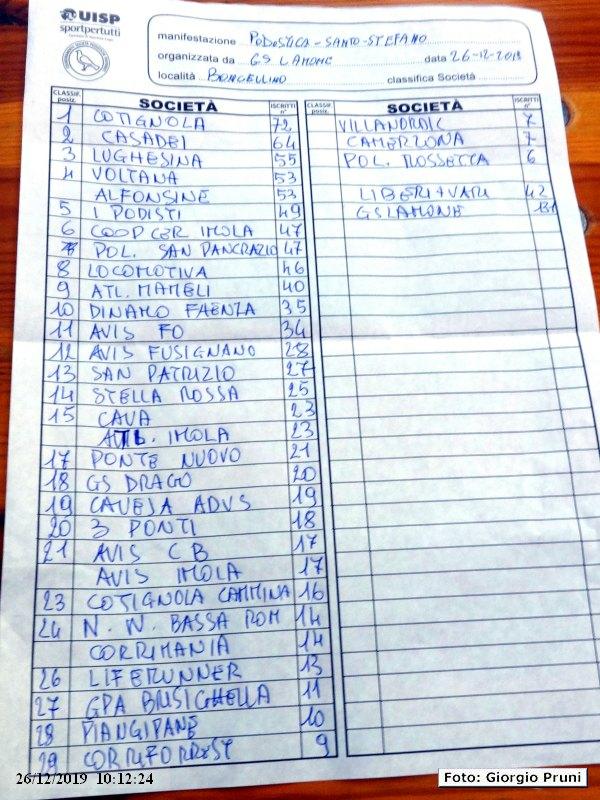 UISP
sportpertutti
manifestazione PODISTICA - SANTO-STEFANO
organizzata da GS LAMONE data 26-12-2019
località classifica Società
CLASSIF. posiz. SOCIETÀ ISCRITTI n°
1 COTIGNOLA 72
2 CASADEI 64
3 LUGHESINA 55
4 VOLTANA 53
ALFONSINE 53
5 I PODISTI 49
6 COOP CER IMOLA 47
POL. SAN PANCRAZIO 47
8 LOCOMOTIVA 46
9 ATL. MAMELI 40
10 DINAMO FAENZA 35
11 AVIS FO 34
12 AVIS FUSIGNANO 28
13 SAN PATRIZIO 27
14 STELLA ROSSA 25
15 CAVA 23
ATL. IMOLA 23
17 PONTE NUOVO 21
18 GS DRAGO 20
19 CAVEJA ADVS 19
20 3 PONTI 18
21 AVIS CB 17
AVIS IMOLA 17
23 COTIGNOLA CAMMINA 16
24 N. W. BASSA ROM 14
CORRIMANIA 14
26 LIFERUNNER 13
27 GPA BRISIGHELLA 11
28 PIANGIPANE 10
29 CORRIFORREST 9
CLASSIF. posiz. SOCIETÀ ISCRITTI n°
7
CAMERLONA 7
POL. ROSSETTA 6
LIBERI + VARI 42
GS LAMONE 131
26/12/2019 10:12:24
Foto: Giorgio Pruni